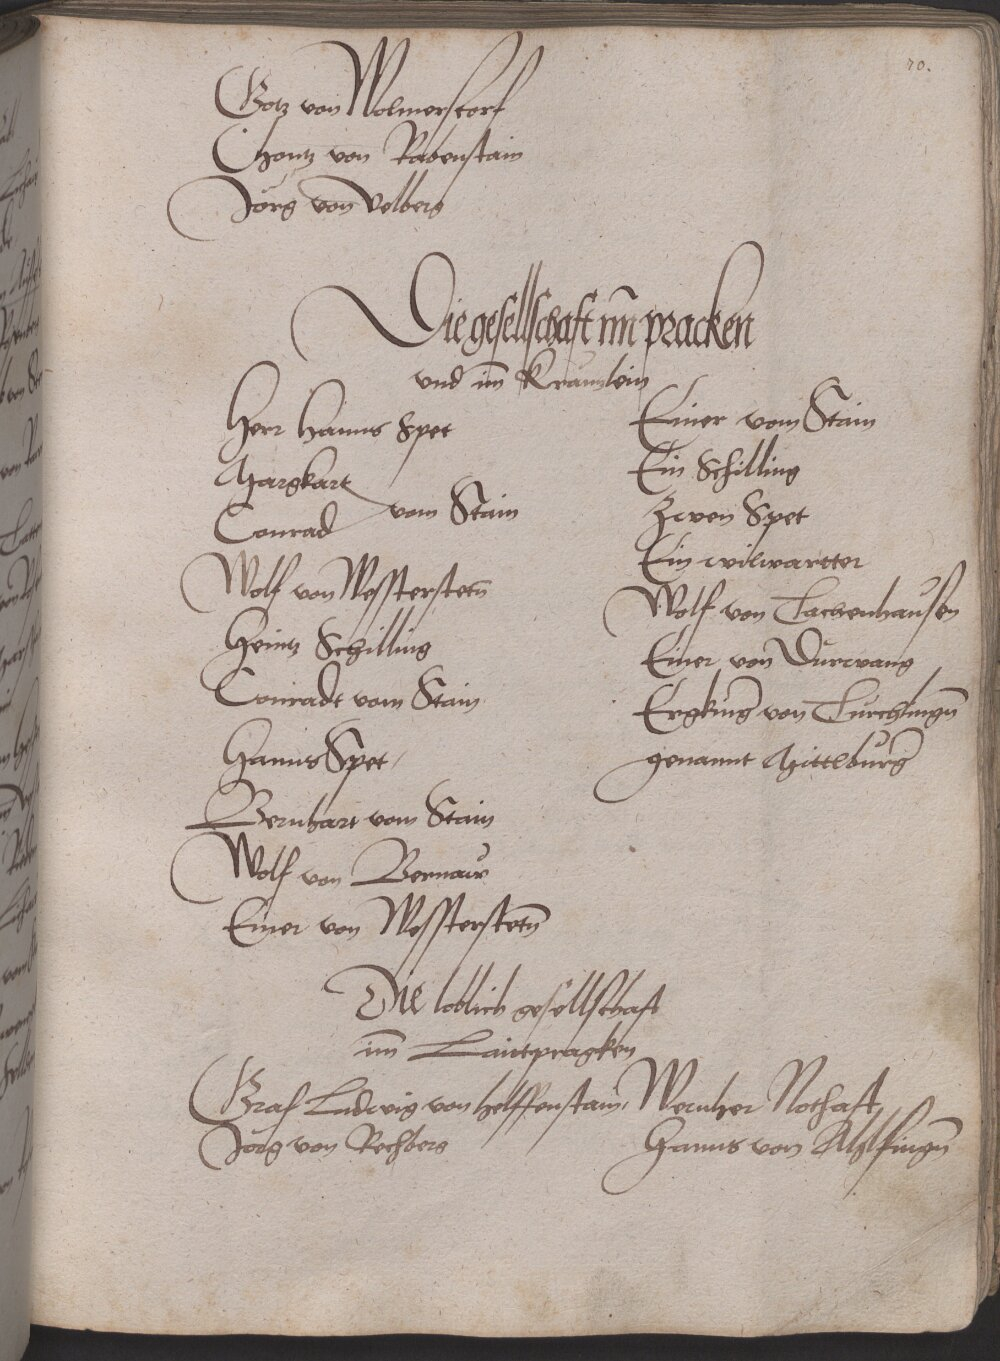 70.
Götz von Wolmerstorf
Chontz von Rabenstain
Jörg von Velberg
Die gesellschaft im pracken
und im Kräunlein
Herr Hanns Spet
Margkart
Conrad vom Stain
Wolf von Westerstetn
Heintz Schilling
Conradt vom Stain
Hanns Spet
Bernhart vom Stain
Wolf von Bernaw
Einer von Westerstetn
Einer vom Stain
Ein Schilling
Zwen Spet
Ein wilwartter
Wolf von Tachenhausen
Einer von Dürwang
Ergking von Türchingn
genannt Mittlburg
Die loblich gesellschaft
im Laitpragken
Graf Ludwig von helffenstain,
Jörg von Rechberg
Wernher Nothaft,
Hanns von Ahlfingn